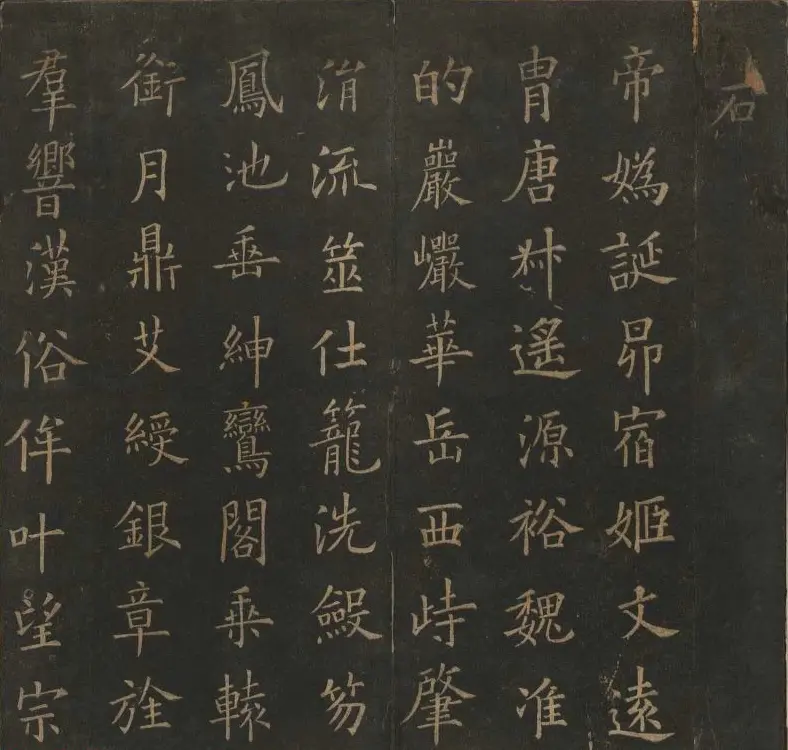 石
帝媯誕昴宿姬文遠
胄唐叔遙源裕魏准
的巖巗華岳西峙肇
涓流筮仕籠洗笏
鳳池垂紳鸞閣乘轅
銜月鼎艾綬銀章旌
羣響漢俗侔叶望宗